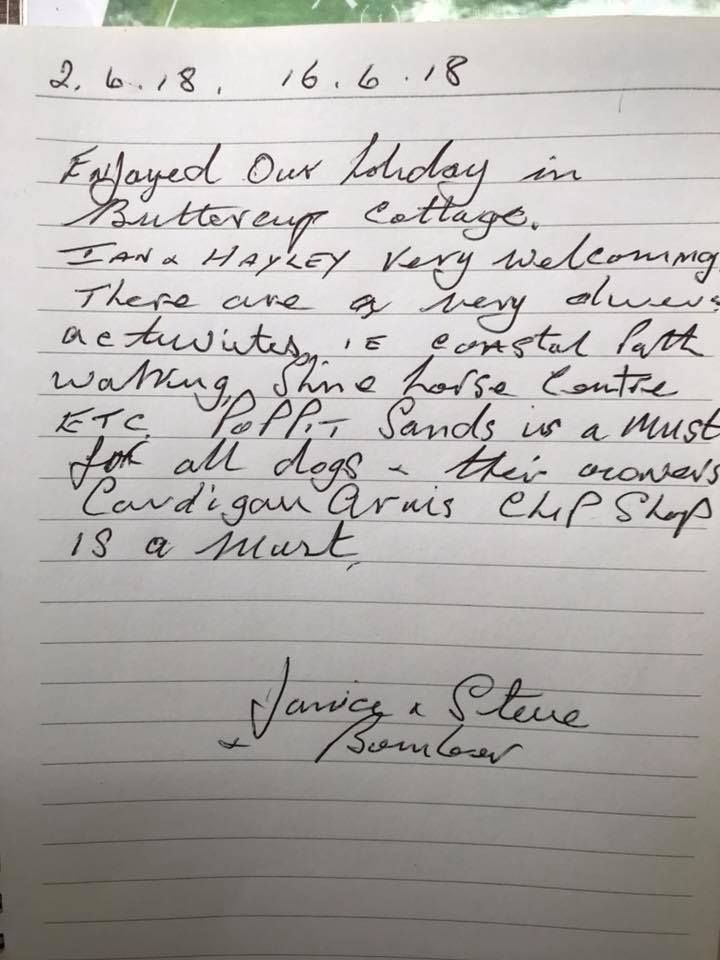 2.6.18. 16.6.18
Enjoyed Our holiday in
Buttercup Cottage.
IAN & HAYLEY very welcoming.
There are a very divers
activites, IE coastal Path
walking, Shire horse Centre
ETC. POPPIT Sands is a must
for all dogs & their owners
Cardigan Arms CHIP Shop
IS a must,
Janice & Steve
& Bomber